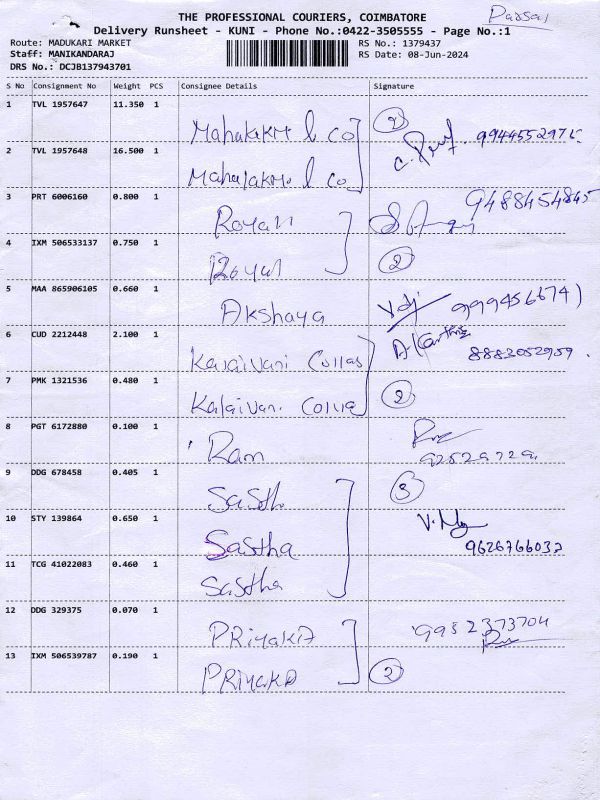 THE PROFESSIONAL COURIERS, COIMBATORE
Delivery Runsheet - KUNI - Phone No.:0422-3505555 - Page No.:1
Route: MADUKARI MARKET RS No.: 1379437
Staff: MANIKANDARAJ RS Date: 08-Jun-2024
DRS No.: DCJB137943701
S No Consignment No Weight PCS Consignee Details Signature
1 TVL 1957647 11.350 1 Mahalakmi & co 2
9944552975
2 TVL 1957648 16.500 1 Mahalakmi & co
3 PRT 6006160 0.800 1 Royal 9488454845
4 IXM 506533137 0.750 1 Royal 2
5 MAA 865906105 0.660 1 Akshaya 9994566741
6 CUD 2212448 2.100 1 Kalaivani
8883052959
7 PMK 1321536 0.480 1 Kalaivani 2
8 PGT 6172880 0.100 1 Ram
9 DDG 678458 0.405 1 Sastha 3
10 STY 139864 0.650 1 Sastha 9626766032
11 TCG 41022083 0.460 1 Sastha
12 DDG 329375 0.070 1 PRiyakA 9952373704
13 IXM 506539787 0.190 1 PRiyakA 2